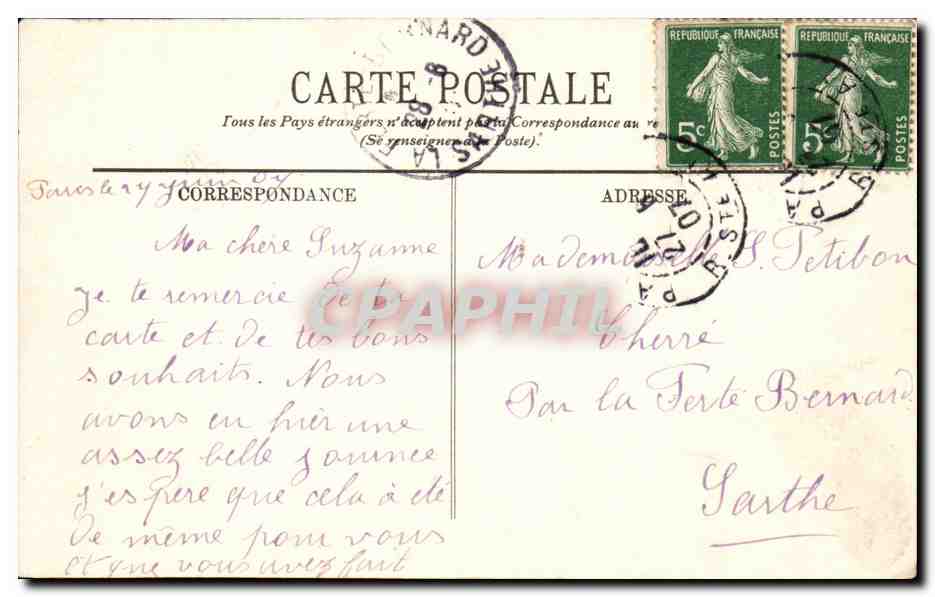 CARTE POSTALE
Tous les Pays étrangers n'acceptent pas la Correspondance au
(Se renseigner à la Poste).
REPUBLIQUE FRANÇAISE
5c
POSTES
REPUBLIQUE FRANÇAISE
5c
POSTES
Paris le 27 Juin 07
CORRESPONDANCE
Ma chère Suzanne
je te remercie de ta
carte et de tes bons
souhaits. Nous
avons eu hier une
assez belle journée
j'espere que cela à été
de même pour vous
et que vous avez fait
ADRESSE
Mademoiselle S. Petibon
Cherré
Par la Ferte Bernard
Sarthe
CPAPHIL